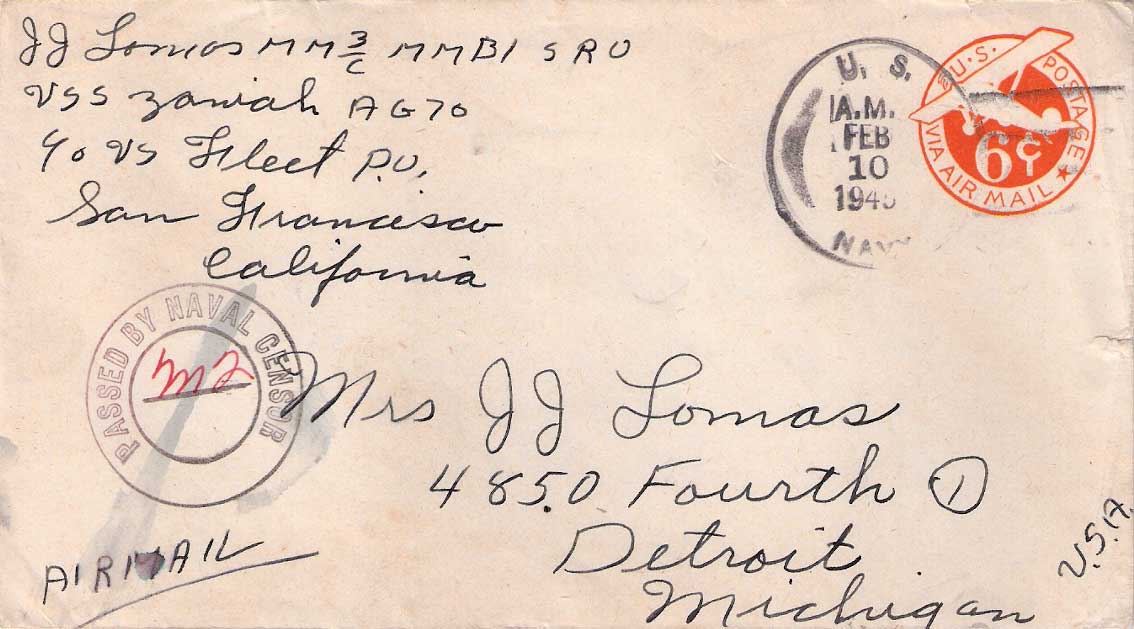 JJ Lomas MM 3/c MMBI SRU
USS Zaniah AG 70
c/o US Fleet P.O.
San Francisco
California
U. S.
A.M.
FEB
10
NAVY
U.S. POSTAGE
6¢
VIA AIR MAIL
PASSED BY NAVAL CENSOR
Mrs JJ Lomas
4850 Fourth ①
Detroit
Michigan
U.S.A.
AIRMAIL